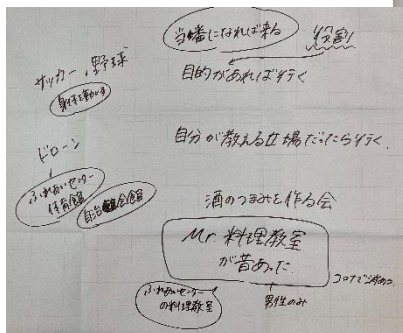 当番になれば来る
役割
目的があれば行く
サッカー、野球
身体を動かす
自分が教える立場だったら行く
ドローン
ふれあいセンター
体育館
自治会館
酒のつまみを作る会
Mr.料理教室
が昔あった
ふれあいセンター
の料理教室
男性のみ
コロナで